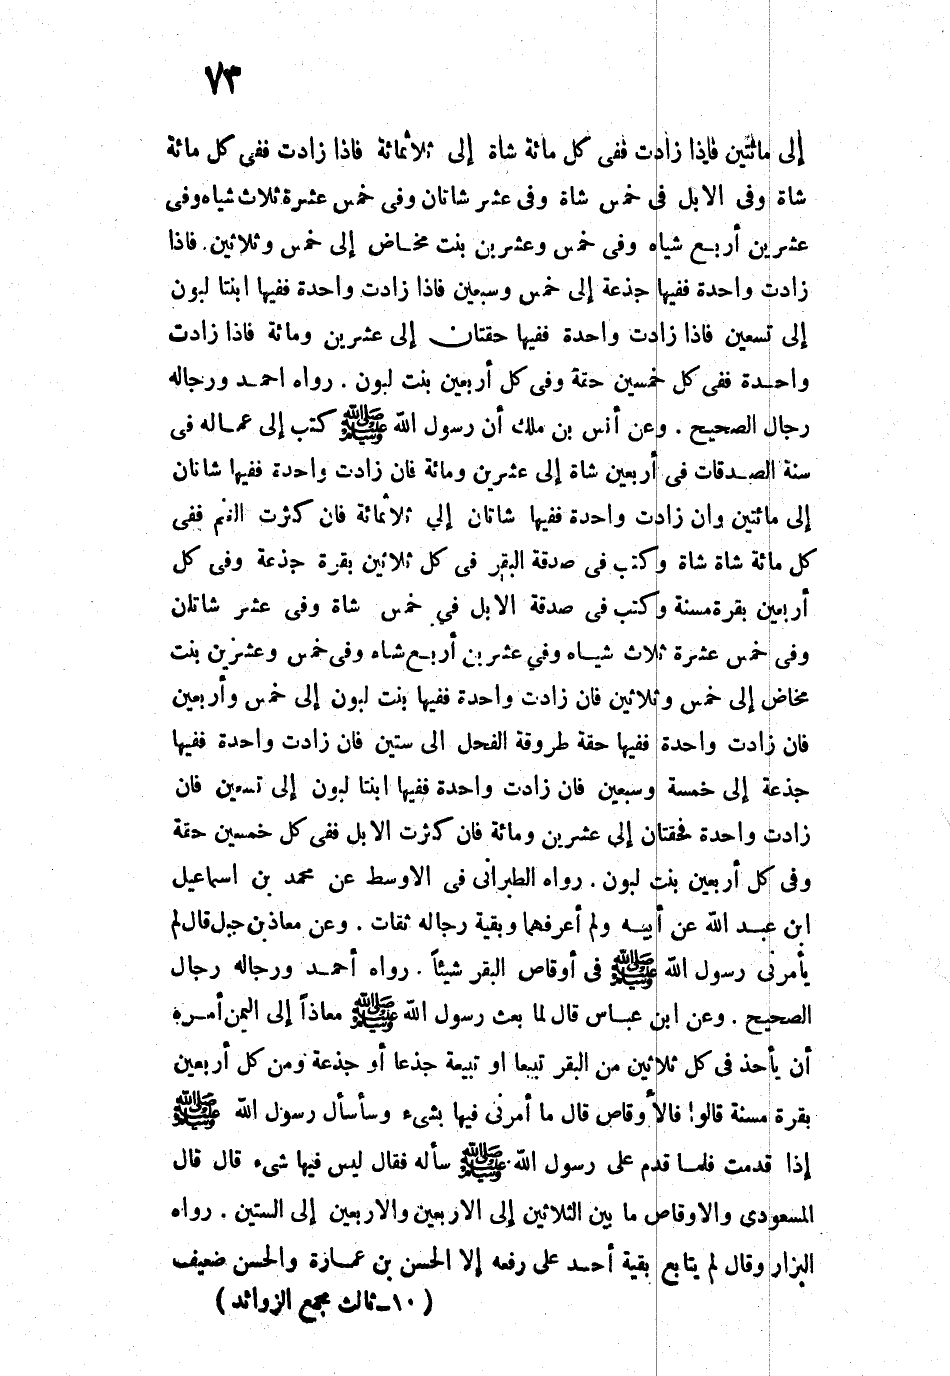 ٧٣
إلى مائتين فاذا زادت ففى كل مائة شاة إلى ثلاثمائة فاذا زادت ففى كل مائة
شاة وفى الابل فى خمس شاة وفى عشر شاتان وفى خمس عشرة ثلاث شياه وفى
عشرين أربع شياه وفى خمس وعشرين بنت مخاض إلى خمس وثلاثين. فاذا
زادت واحدة ففيها جذعة إلى خمس وسبعين فاذا زادت واحدة ففيها ابنتا لبون
إلى تسعين فاذا زادت واحدة ففيها حقتان إلى عشرين ومائة فاذا زادت
واحدة ففى كل خمسين حقة وفى كل أربعين بنت لبون . رواه احمد ورجاله
رجال الصحيح . وعن أنس بن ملك أن رسول الله ﷺ كتب إلى عماله فى
سنة الصدقات فى أربعين شاة إلى عشرين ومائة فان زادت واحدة ففيها شاتان
إلى مائتين وان زادت واحدة ففيها شاتان إلي ثلاثمائة فان كثرت الغنم ففى
كل مائة شاة شاة وكتب فى صدقة البقر فى كل ثلاثين بقرة جذعة وفى كل
أربعين بقرة مسنة وكتب فى صدقة الابل في خمس شاة وفى عشر شاتان
وفى خمس عشرة ثلاث شياه وفي عشرين أربع شاه وفى خمس وعشرين بنت
مخاض إلى خمس وثلاثين فان زادت واحدة ففيها بنت لبون إلى خمس وأربعين
فان زادت واحدة ففيها حقة طروقة الفحل الى ستين فان زادت واحدة ففيها
جذعة إلى خمسة وسبعين فان زادت واحدة ففيها ابنتا لبون إلى تسعين فان
زادت واحدة فحقتان إلي عشرين ومائة فان كثرت الابل ففى كل خمسين حقة
وفى كل أربعين بنت لبون . رواه الطبرانى فى الاوسط عن محمد بن اسماعيل
ابن عبد الله عن أبيه ولم أعرفهما وبقية رجاله ثقات . وعن معاذ بن جبل قال لم
يأمرنى رسول الله ﷺ فى أوقاص البقر شيئاً . رواه أحمد ورجاله رجال
الصحيح . وعن ابن عباس قال لما بعث رسول الله ﷺ معاذاً إلى اليمن أمره
أن يأخذ فى كل ثلاثين من البقر تبيعا او تبيعة جذعا أو جذعة ومن كل أربعين
بقرة مسنة قالوا فالأوقاص قال ما أمرنى فيها بشىء وسأسأل رسول الله ﷺ
إذا قدمت فلما قدم على رسول الله ﷺ سأله فقال ليس فيها شىء قال قال
المسعودى والاوقاص ما بين الثلاثين إلى الاربعين والاربعين إلى الستين . رواه
البزار وقال لم يتابع بقية أحد على رفعه إلا الحسن بن عمارة والحسن ضعيف
( ١٠ـ ثالث مجمع الزوائد )